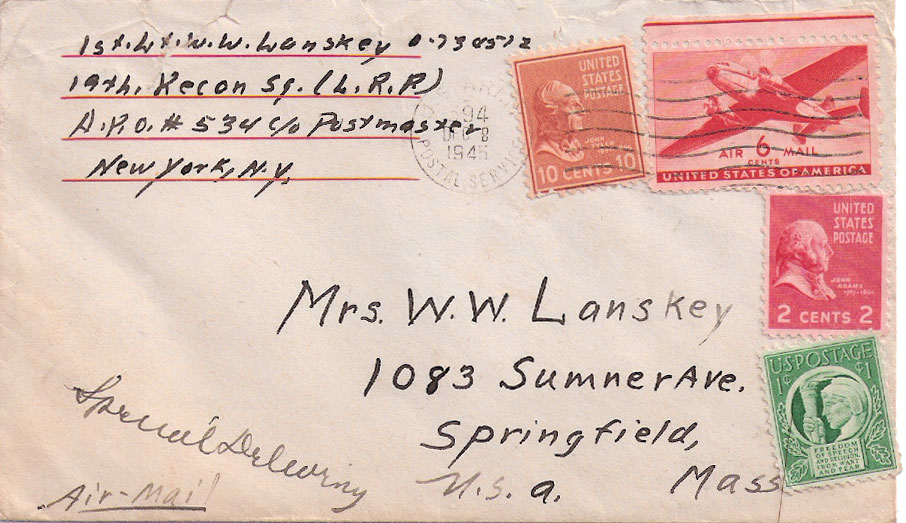 1st. Lt. W. W. Lanskey O-738512
19th. Recon Sq. (L.R.P)
A.P.O. # 534 c/o Postmaster
New York, N.Y.
94
DEC 8
1945
POSTAL SERVICE
UNITED
STATES
POSTAGE
JOHN
10 CENTS 10
AIR 6 MAIL
CENTS
UNITED STATES OF AMERICA
UNITED
STATES
POSTAGE
JOHN
ADAMS
2 CENTS 2
U.S. POSTAGE
1¢ ¢1
FREEDOM
OF SPEECH
AND RELIGION,
FROM WANT
AND FEAR
Mrs. W.W. Lanskey
1083 Sumner Ave.
Springfield,
U.S.a. Mass
Special Delivery
Air-Mail